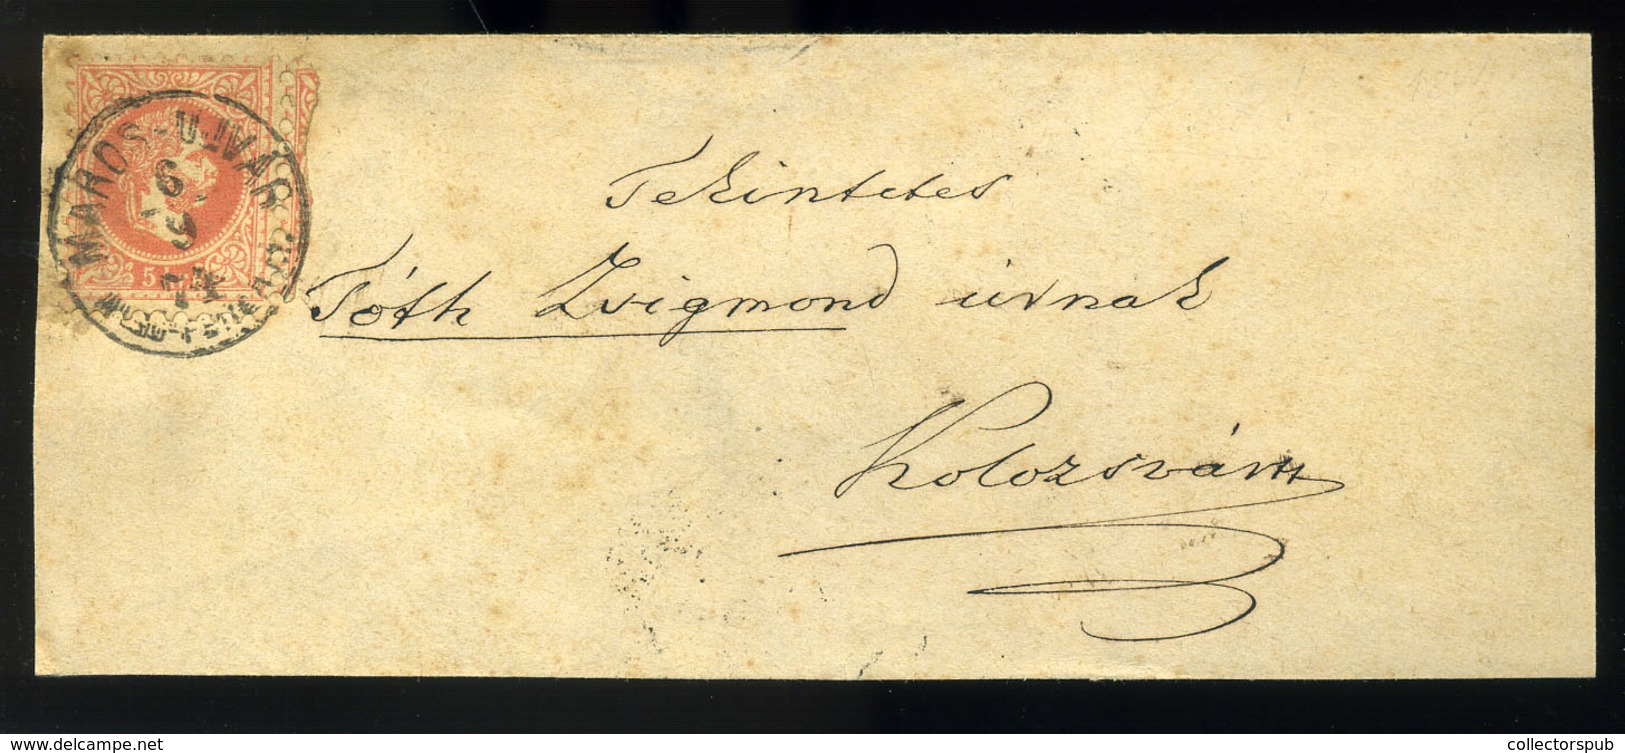 MAROS-UJVÁR
6
9
74
5
Tekintetes
Tóth Zsigmond úrnak
Kolozsvártt
collectorspub